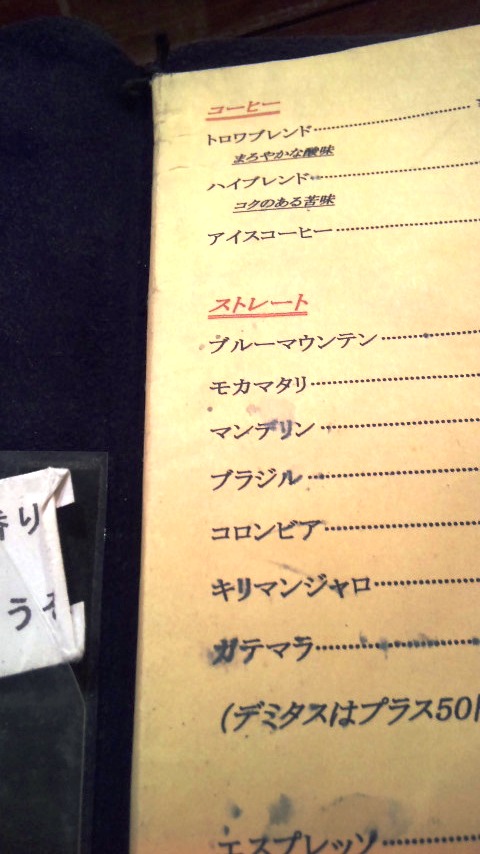 コーヒー
トロワブレンド
まろやかな酸味
ハイブレンド
コクのある苦味
アイスコーヒー
ストレート
ブルーマウンテン
モカマタリ
マンデリン
ブラジル
コロンビア
キリマンジャロ
ガテマラ
(デミタスはプラス50
エスプレッソ
香り
うぞ